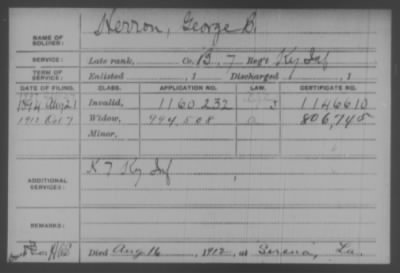 NAME OF SOLDIER: Herron, George B.
SERVICE: Late rank, Co. B, 7 Reg't Ky Inf
TERM OF SERVICE: Enlisted , 1 Discharged , 1
DATE OF FILING. CLASS. APPLICATION NO. LAW. CERTIFICATE NO.
1894 Aug 21 Invalid, 1160232 1146610
1912 Oct 7 Widow, 994,508 806,745
Minor,
ADDITIONAL SERVICES: K 7 Ky Inf
REMARKS:
Died Aug 16, 1912, at Serena, La.